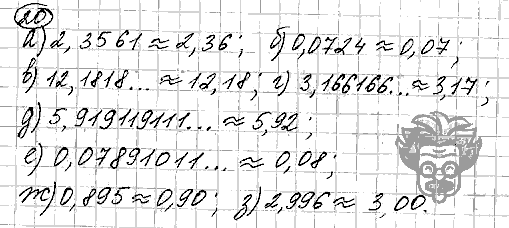 20
а) 2,3561 ≈ 2,36; б) 0,0724 ≈ 0,07;
в) 12,1818... ≈ 12,18; г) 3,166166... ≈ 3,17;
д) 5,919119111... ≈ 5,92;
е) 0,07891011... ≈ 0,08;
ж) 0,895 ≈ 0,90; з) 2,996 ≈ 3,00.